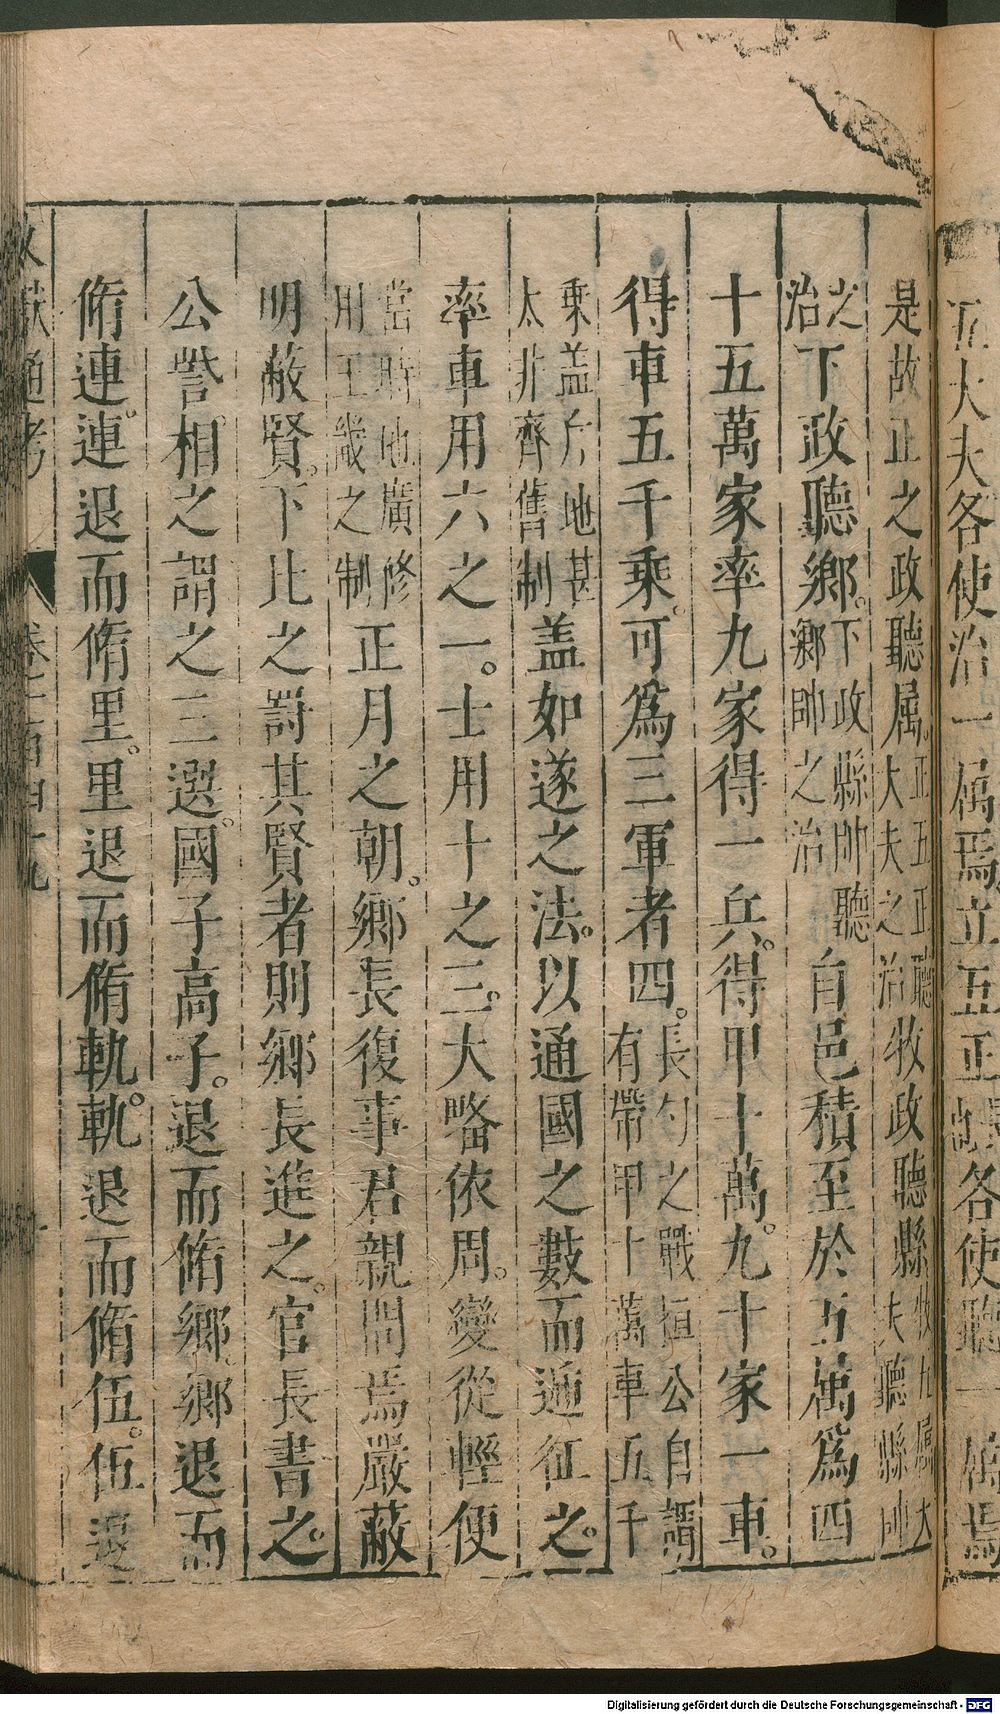 五大夫各使治一屬焉立五正各使聽一屬焉
是故正之政聽屬正五正聽大夫之治牧政聽縣牧九屬大夫聽縣帥
之治下政聽鄉。下政縣帥聽鄉帥之治自邑積至於五萬爲四
十五萬家率九家得一兵。得甲十萬。九十家一車。
得車五千乘。可爲三軍者四。長勺之戰桓公自謂有帶甲十萬車五千
乘盖斥地甚太非齊舊制盖如遂之法。以通國之數而遞征之。
率車用六之一。士用十之三。大略依周。變從輕便
當時地廣修用王畿之制正月之朝。鄉長復事君親問焉嚴蔽
明蔽賢。下比之罰其賢者則鄉長進之。官長書之。
公訾相之謂之三選。國子高子。退而脩鄉。鄉退而
脩連。連退而脩里。里退而脩軌。軌退而脩伍。伍退
文獻通考 卷一百四十九
Digitalisierung gefördert durch die Deutsche Forschungsgemeinschaft - DFG